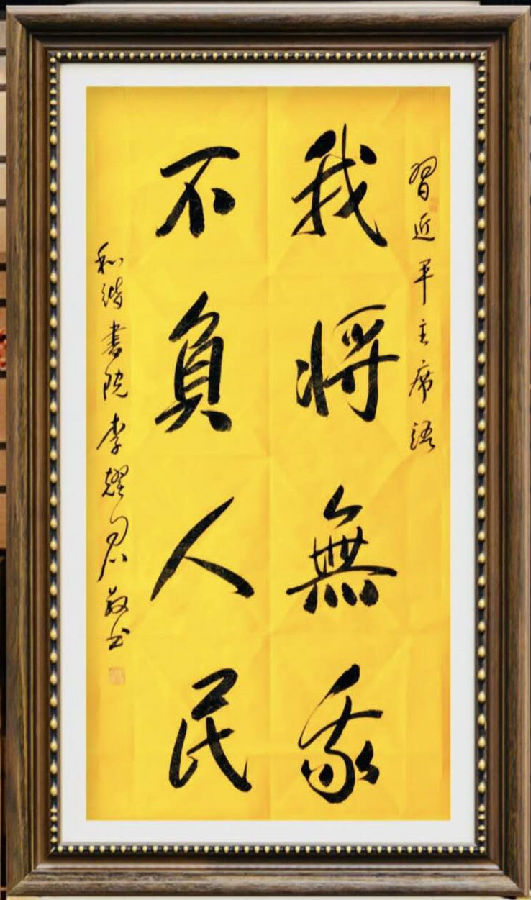 習近平主席語
我將無我
不負人民
和谐書院李耀君敬书